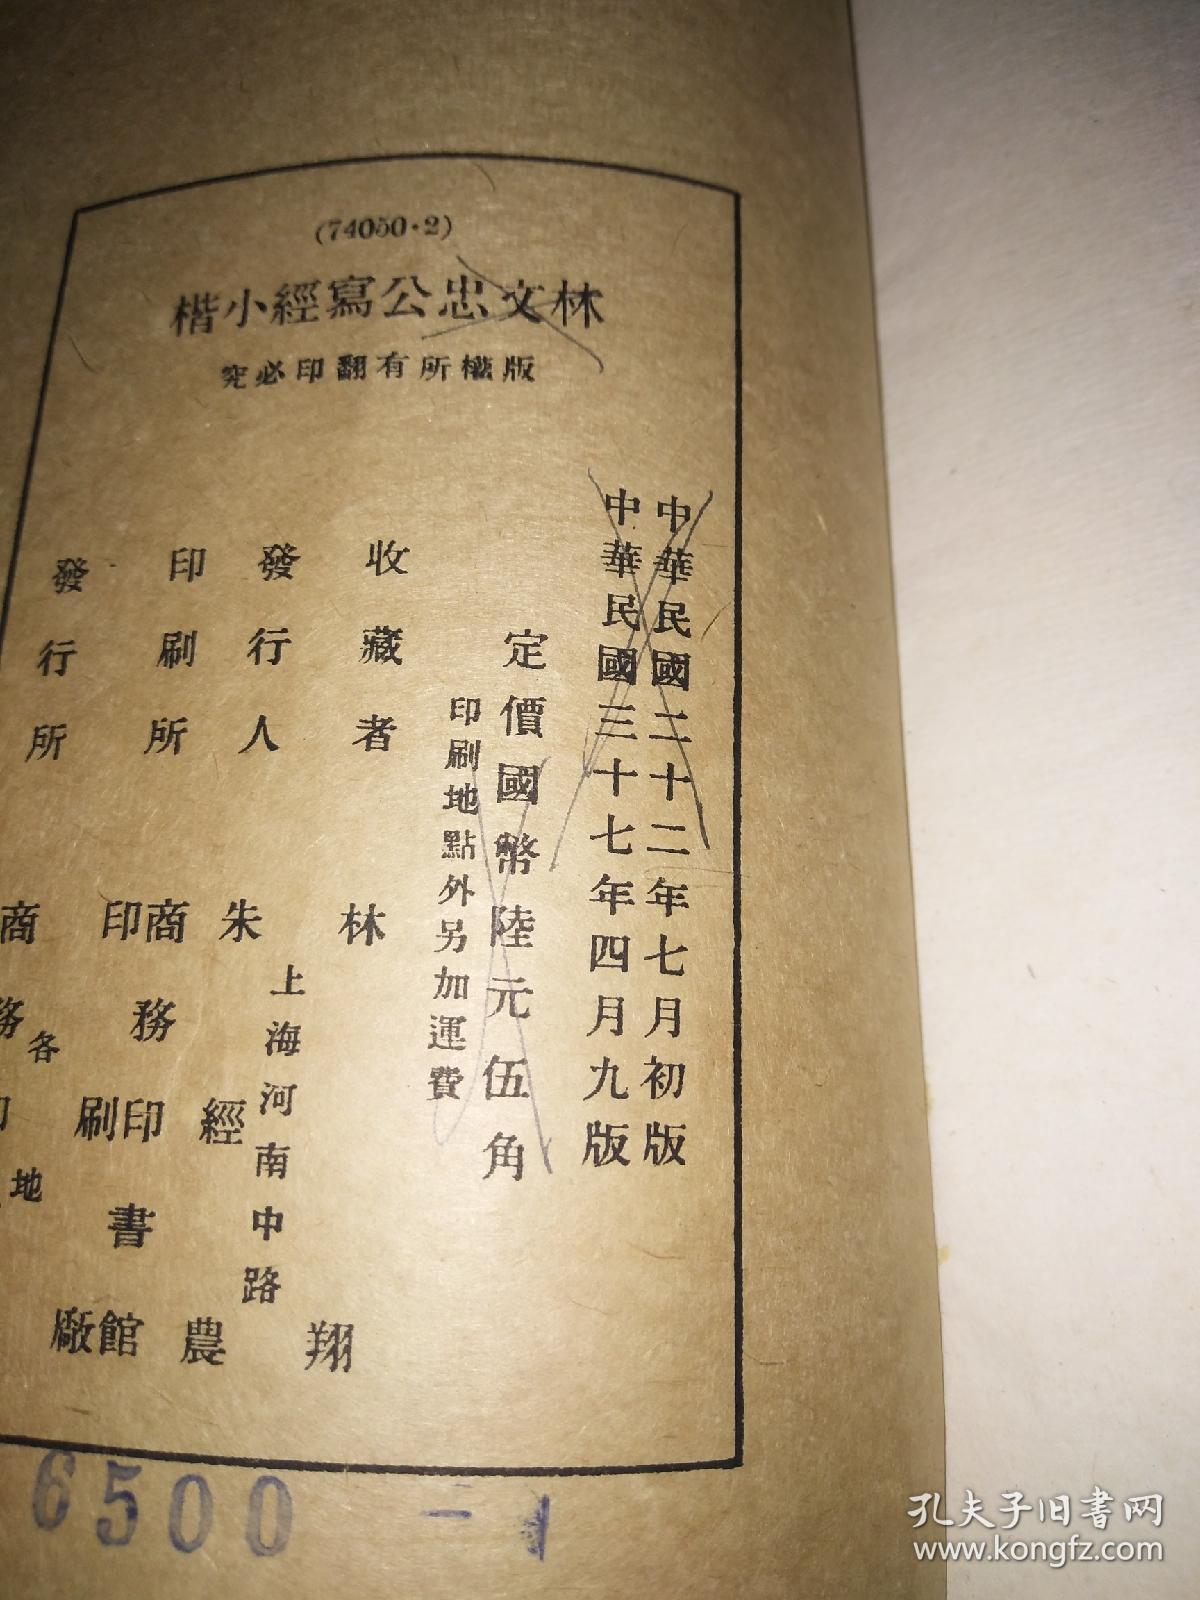 (74050·2)
林文忠公寫經小楷
版權所有翻印必究
中華民國二十二年七月初版
中華民國三十七年四月九版
定價國幣陸元伍角
印刷地點外另加運費
收藏者 林翔
發行人 朱經農
上海河南中路
印刷所 商務印書館
印刷廠
發行所 商務印
各地
6500-1
孔夫子旧书网
www.kongfz.com